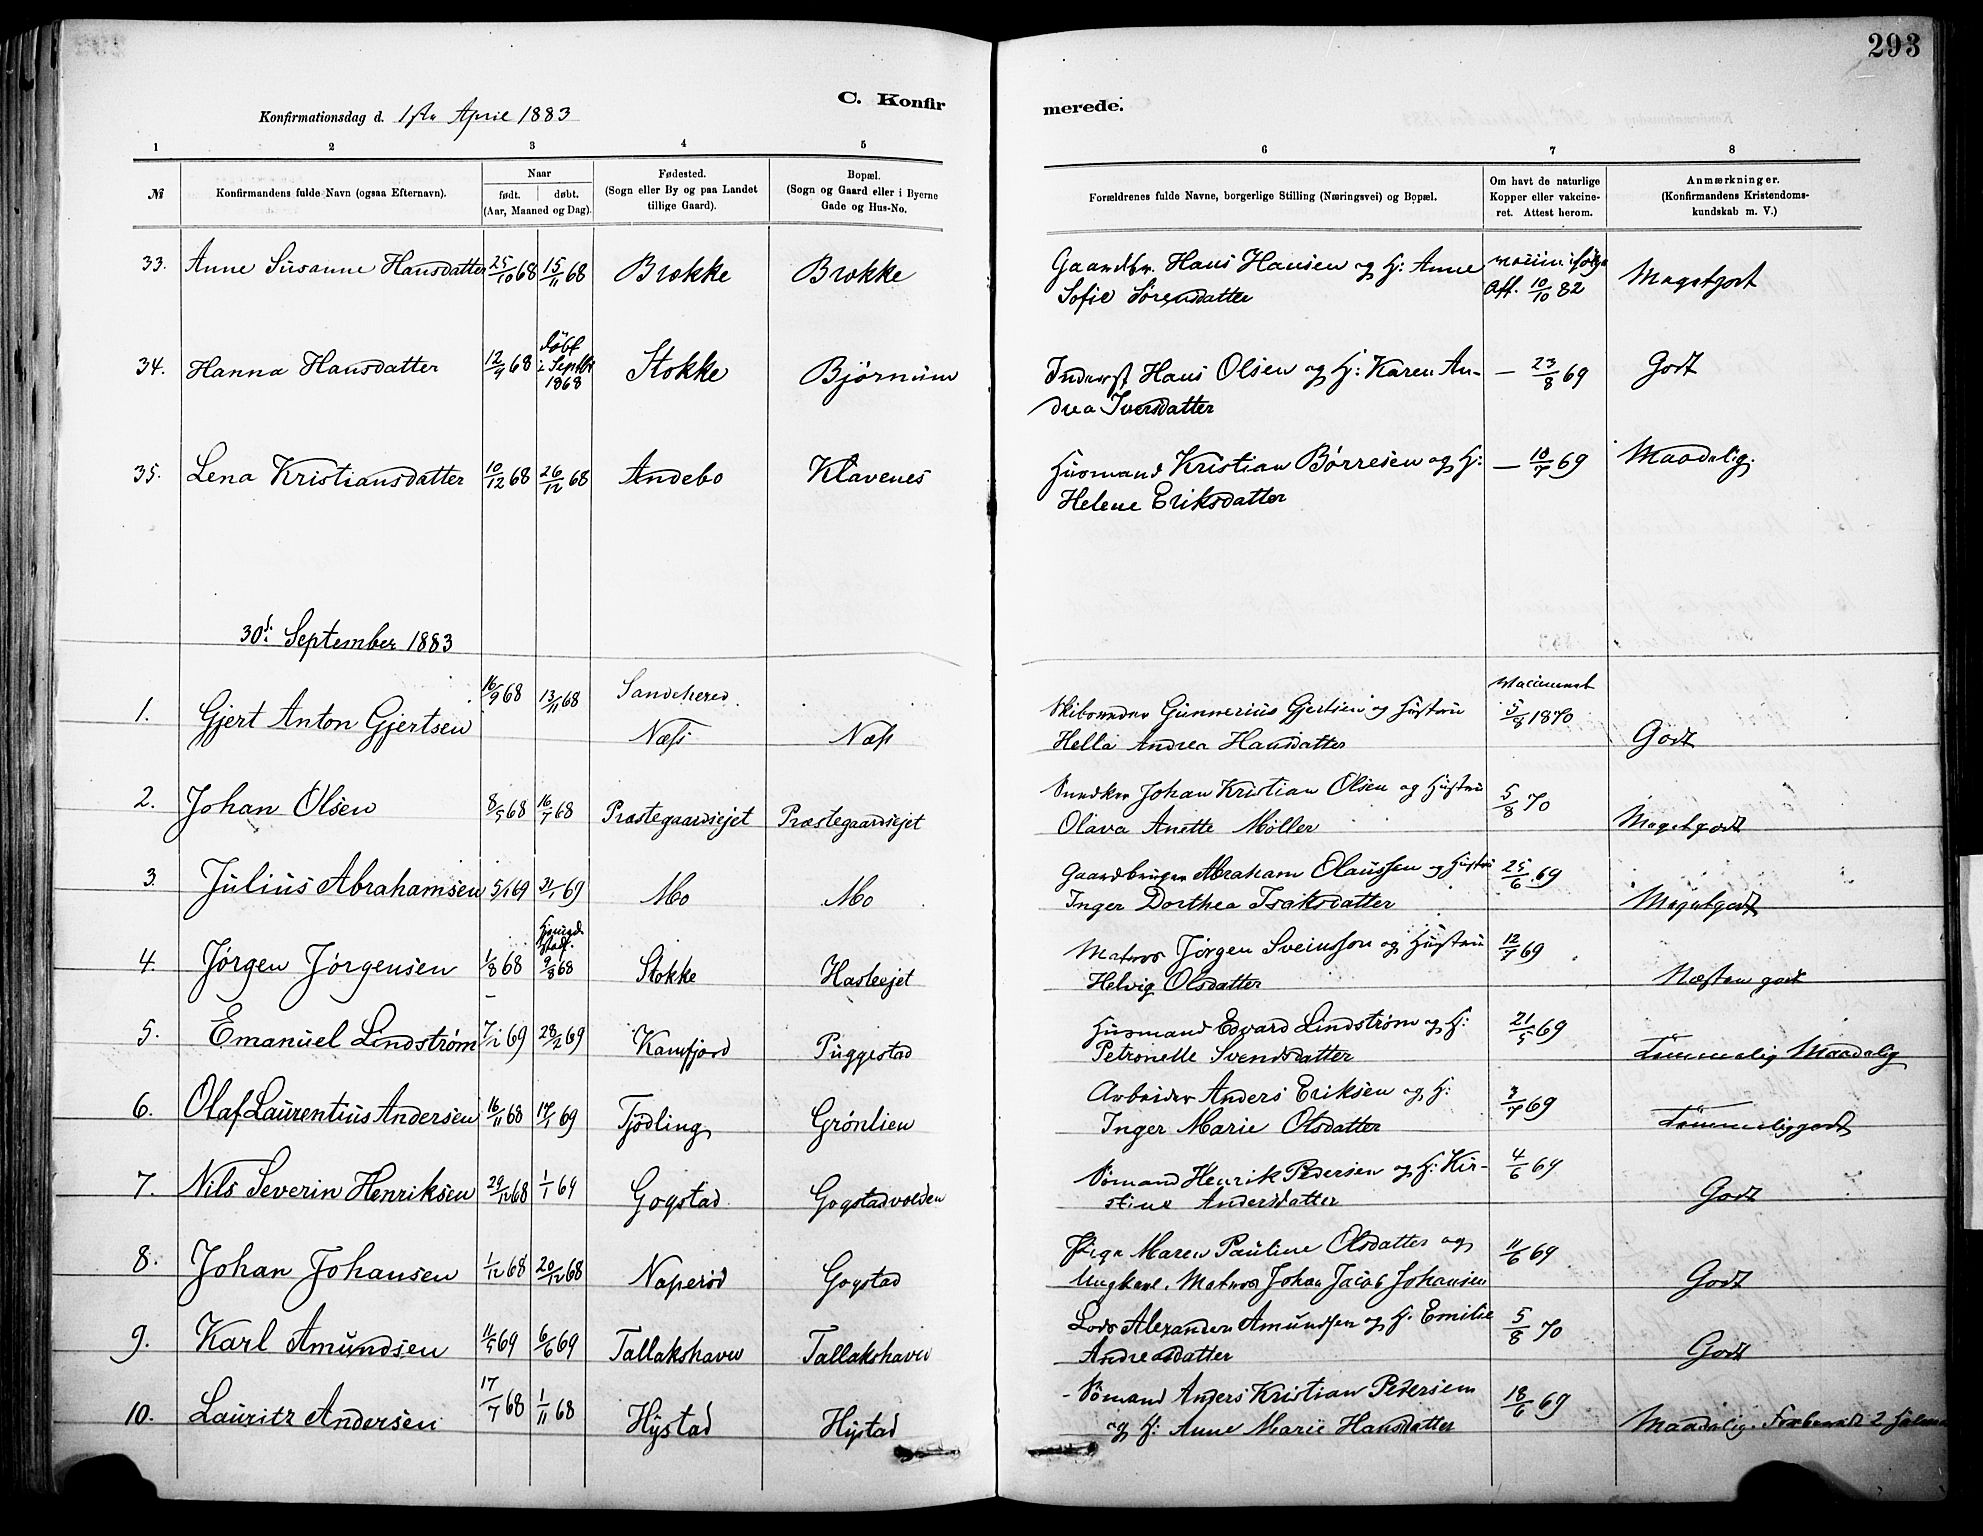 293
C. Konfirmerede.
Konfirmationsdag d. 1ste April 1883
1 2 3 4 5 6 7 8
№ Konfirmandens fulde Navn (ogsaa Efternavn).
Naar
født. døbt.
(Aar, Maaned og Dag).
Fødested.
(Sogn eller By og paa Landet
tillige Gaard).
Bopæl.
(Sogn og Gaard eller i Byerne
Gade og Hus-No.
Forældrenes fulde Navne, borgerlige Stilling (Næringsvei) og Bopæl.
Om havt de naturlige
Kopper eller vakcine-
ret. Attest herom.
Anmærkninger.
(Konfirmandens Kristendoms-
kundskab m. V.)
33. Anne Susanne Hansdatter 25/10 68 15/11 68 Brokke Brokke
Gaardbr. Hans Hansen og H: Anne
Sofie Sørensdatter
Att. 10/10 82 Megetgodt
34. Hanna Hansdatter 12/9 68 døbt
i Septbr
1868
Stokke Bjørnum
Inderst Hans Olsen og H: Karen An-
drea Iversdatter
— 23/8 69 Godt
35. Lena Kristiansdatter 10/12 68 26/12 68 Andebo Klavenes
Husmand Kristian Børresen og H:
Helene Eriksdatter
— 10/7 69 Maadelig.
30d: September 1883
1. Gjert Anton Gjertsen 16/9 68 13/11 68 Sandeherred
Næss Næss
Skibsreder Gunnerius Gjertsen og Hustru
Hella Andrea Hansdatter
Vaccineret
5/8 1870 Godt
2. Johan Olsen 8/5 68 16/7 68 Præstegaardsejet Præstegaardsejet
Snedker Johan Kristian Olsen og Hustru
Olava Anette Møller
5/8 70 Megetgodt
3. Julius Abrahamsen 5/1 69 31/1 69 Mo Mo
Gaardbruger Abraham Olaussen og Hustru
Inger Dorthea Isaksdatter
25/6 69 Megetgodt
4. Jørgen Jørgensen 1/8 68 Hjemd.
9/8 68 Stokke Hasleejet
Matros Jørgen Sveinsson og Hustru
Helvig Olsdatter
12/7 69 Næsten godt
5. Emanuel Lindstrøm 7/1 69 28/2 69 Kamfjord Puggestad
Husmand Edvard Lindstrøm og H:
Petronelle Svendsdatter
21/5 69 Temmelig Maadelig
6. Olaf Laurentius Andersen 16/11 68 17/1 69 Tjødling Grønlien
Arbeider Anders Eriksen og H:
Inger Marie Olsdatter
3/7 69 Temmeliggodt
7. Nils Severin Henriksen 29/12 68 1/1 69 Gogstad Gogstadvolden
Sømand Henrik Pedersen og H: Kir-
stine Andersdatter
4/6 69 Godt
8. Johan Johansen 1/12 68 20/12 68 Naperød Gogstad
Pige Maren Pauline Olsdatter og
Ungkarl. Matros Johan Jacob Johansen
11/6 69 Godt
9. Karl Amundsen 11/5 69 6/6 69 Tallakshavn Tallakshavn
Lods Alexander Amundsen og H. Emilie
Andreasdatter
5/8 70 Godt
10. Lauritz Andersen 17/7 68 1/11 68 Hystad Hystad
Sømand Anders Kristian Pedersen
og H: Anne Marie Hansdatter
18/6 69 Maadelig. Forberedt 2